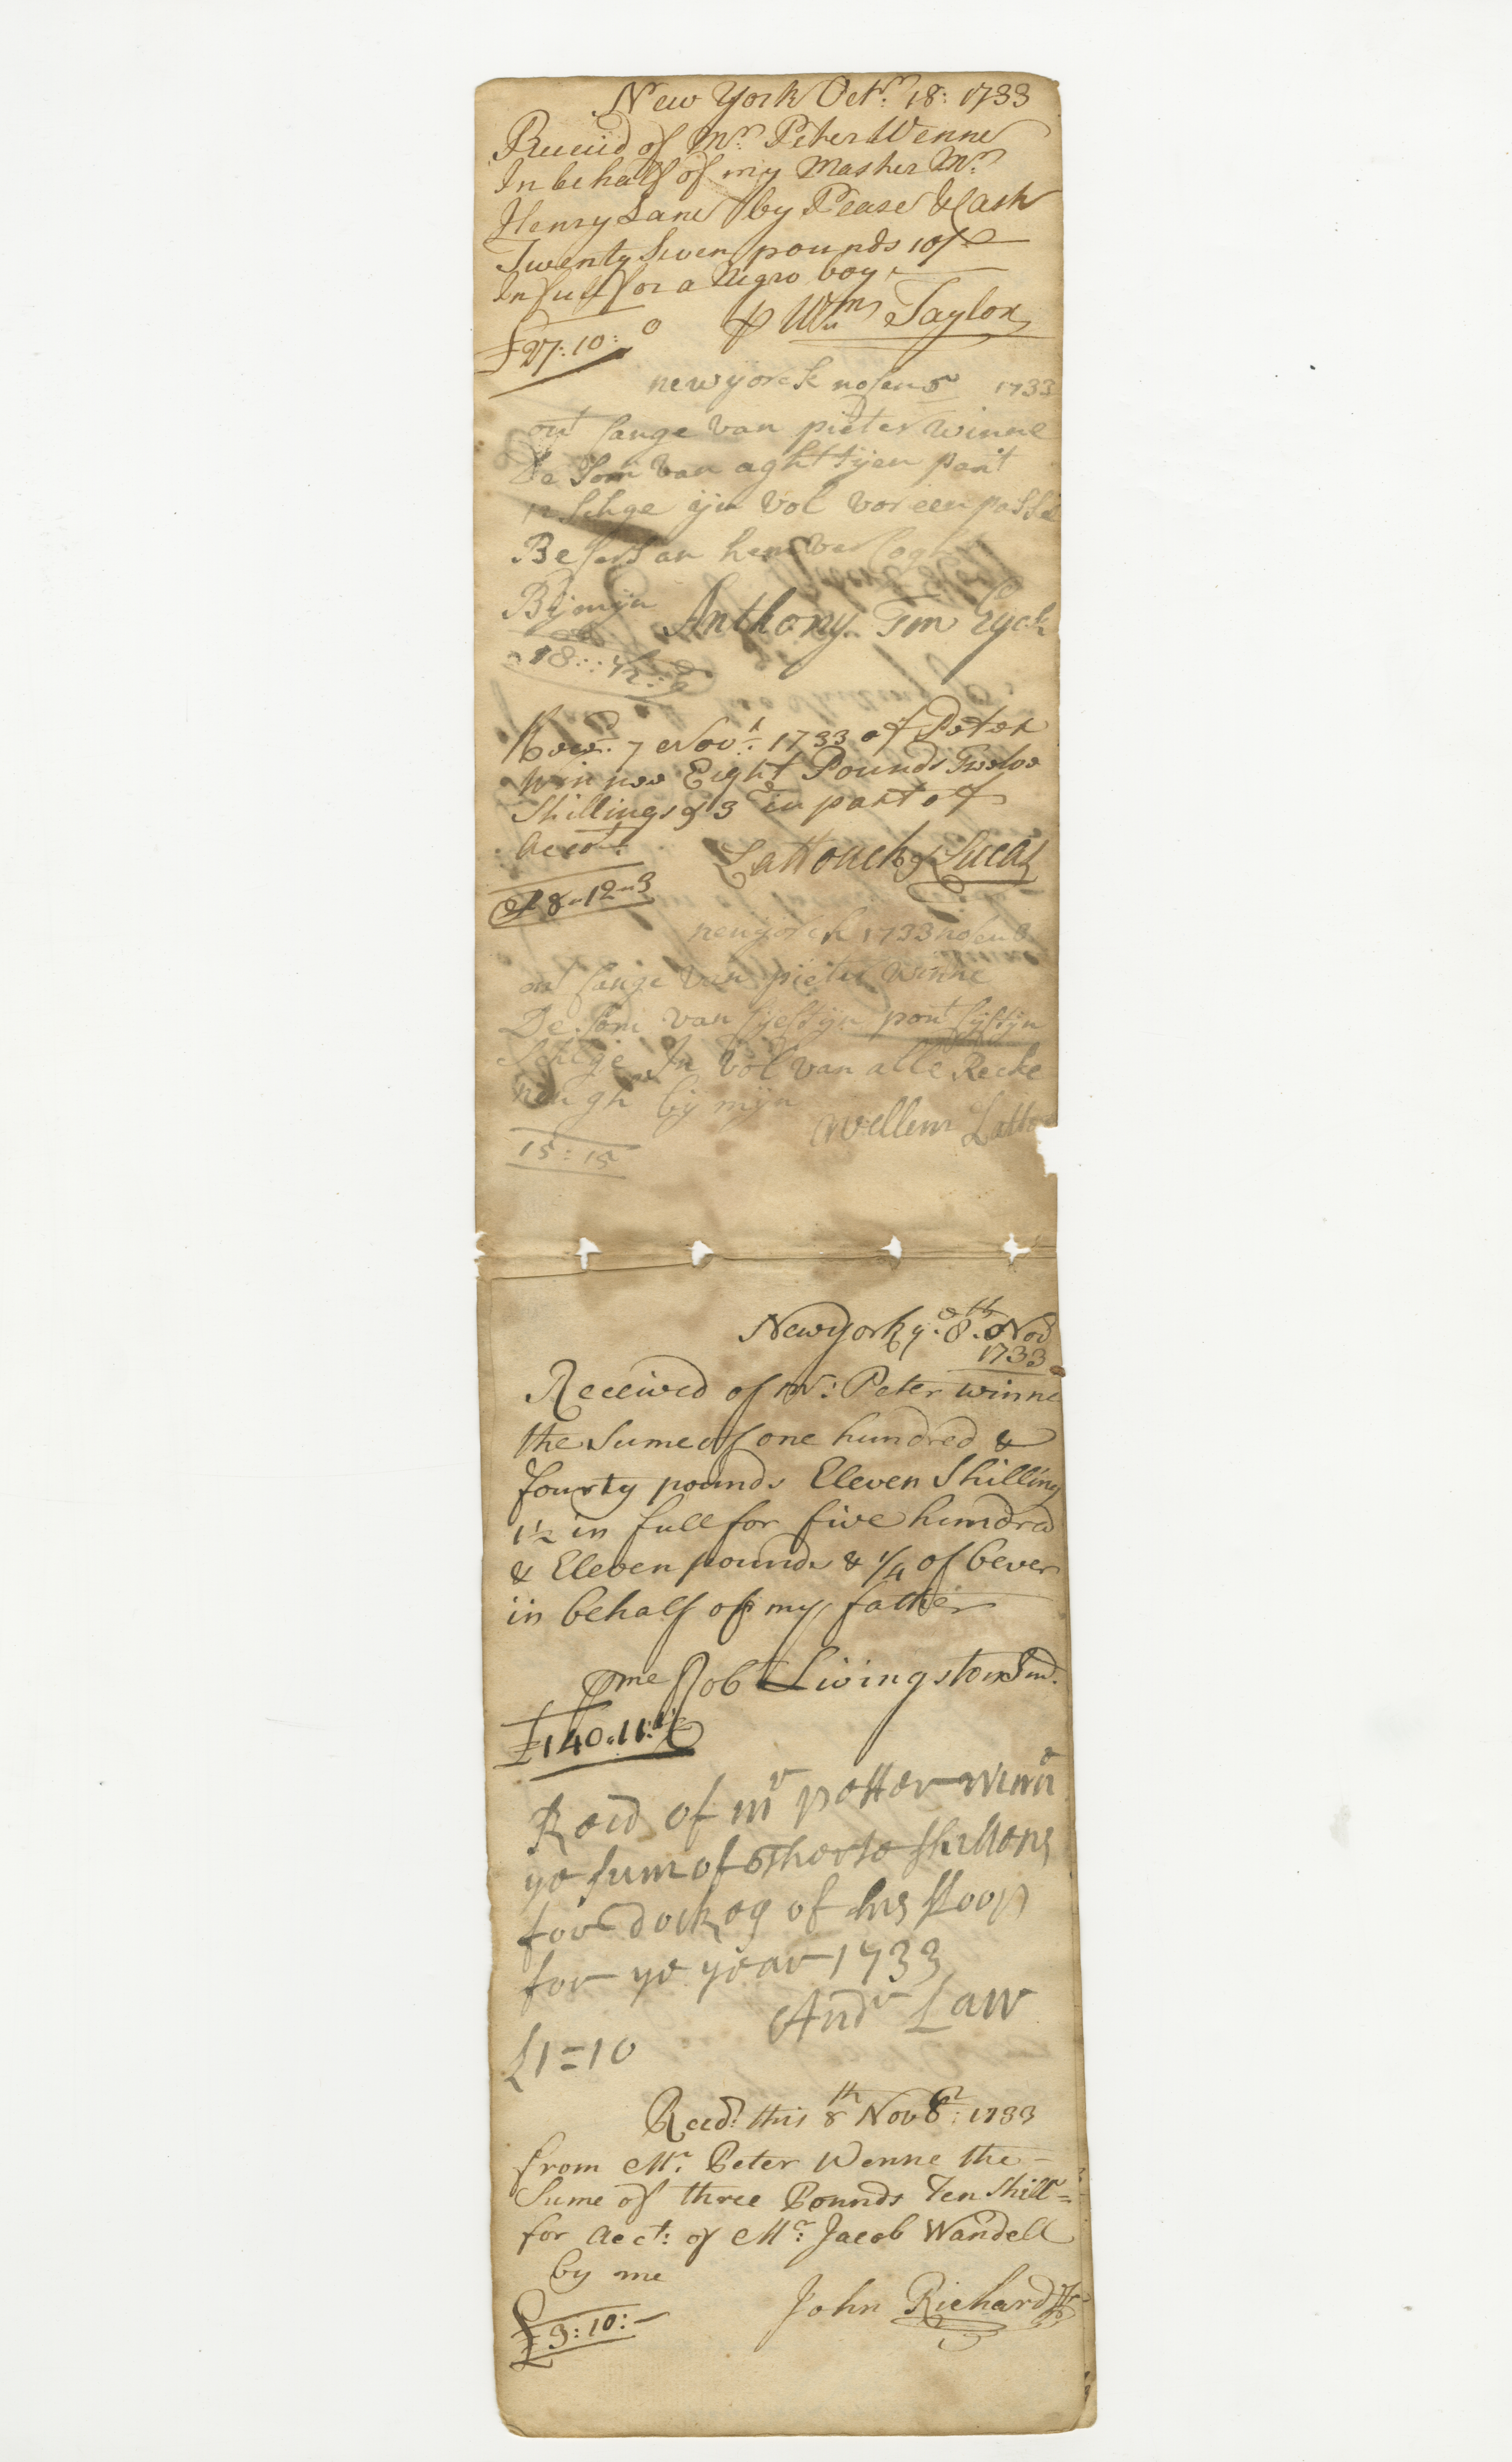 New York Octr. 18: 1733
Receiid of Mr. Peter Wenne
In behalf of my Master Mr.
Henry Lane by Pease & Cash
Twenty Seven pounds 10/
In full for a Negro boy
£27:10:0 ⅌ Wm Taylor
newyorck nofem 5 1733
ont fange van pieter winne
De Som van aghttijen pont
ijn vol vor een passe
Be fers an hem
Bij mijn Anthony Ten Eyck
18::
Recd. 7 Novr. 1733 of Peter
Winnee Eight Pounds Twelve
Shillings & 3d in part of
Accott.
Lattouch & Lucas
£8"12"3
neuyorck 1733 nofem 8
ont fange van pieter winne
De Som van fijeftijn pont fijftijn
Schlge In vol van alle Recke
nengh bij mijn
Wellem
15:15
Newyork ye. 8th. Nov
1733
Received of Mr: Peter winne
the Sume of one hundred &
fourty pounds Eleven Shilling
1½ in full for five hundred
& Eleven pounds & ¼ of bever
in behalf of my father
⅌ me Robt Livingston Junr.
£140.11.1½
Recd of mr petter winne
ye sum of therte shillens
for dockeg of his sloop
for ye year 1733
Andr Law
£1=10
Recd. this 8th Novbr: 1733
from Mr. Peter Wenne the
Sume of three Pounds Ten Shill=
for Acct: of Mr: Jacob Wandell
by me
John Richard Jr
£3:10:—